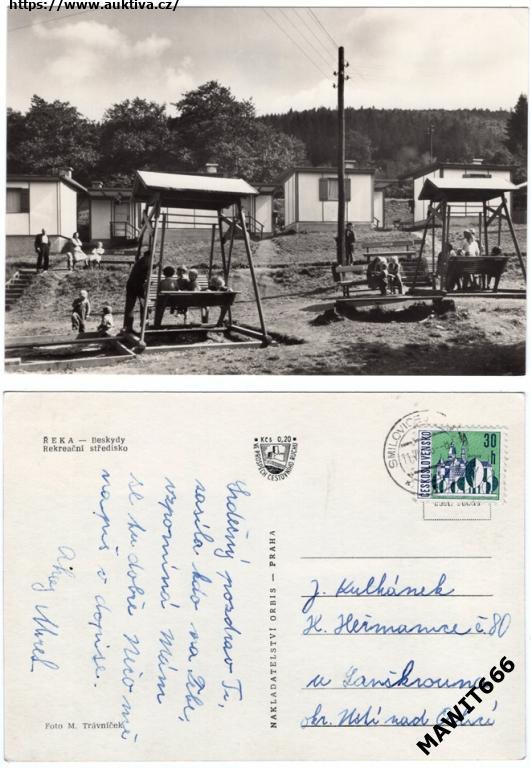 https://www.auktiva.cz/
ŘEKA — Beskydy
Rekreační středisko
Kčs 0,20
VE PROSPĚCH CESTOVNÍHO RUCHU
SMILOVICE
ČESKOSLOVENSKO
30
h
Srdečný pozdrav Ti,
na Tebe,
vzpomíná Mám
se tu dobře
napiš v dopise.
Ahoj
NAKLADATELSTVÍ ORBIS — PRAHA
J. Kulhánek
K. Heřmanice č. 80
u Lanškrouna
okr. Ústí nad Orlicí
Foto M. Trávníček
MAWIT666